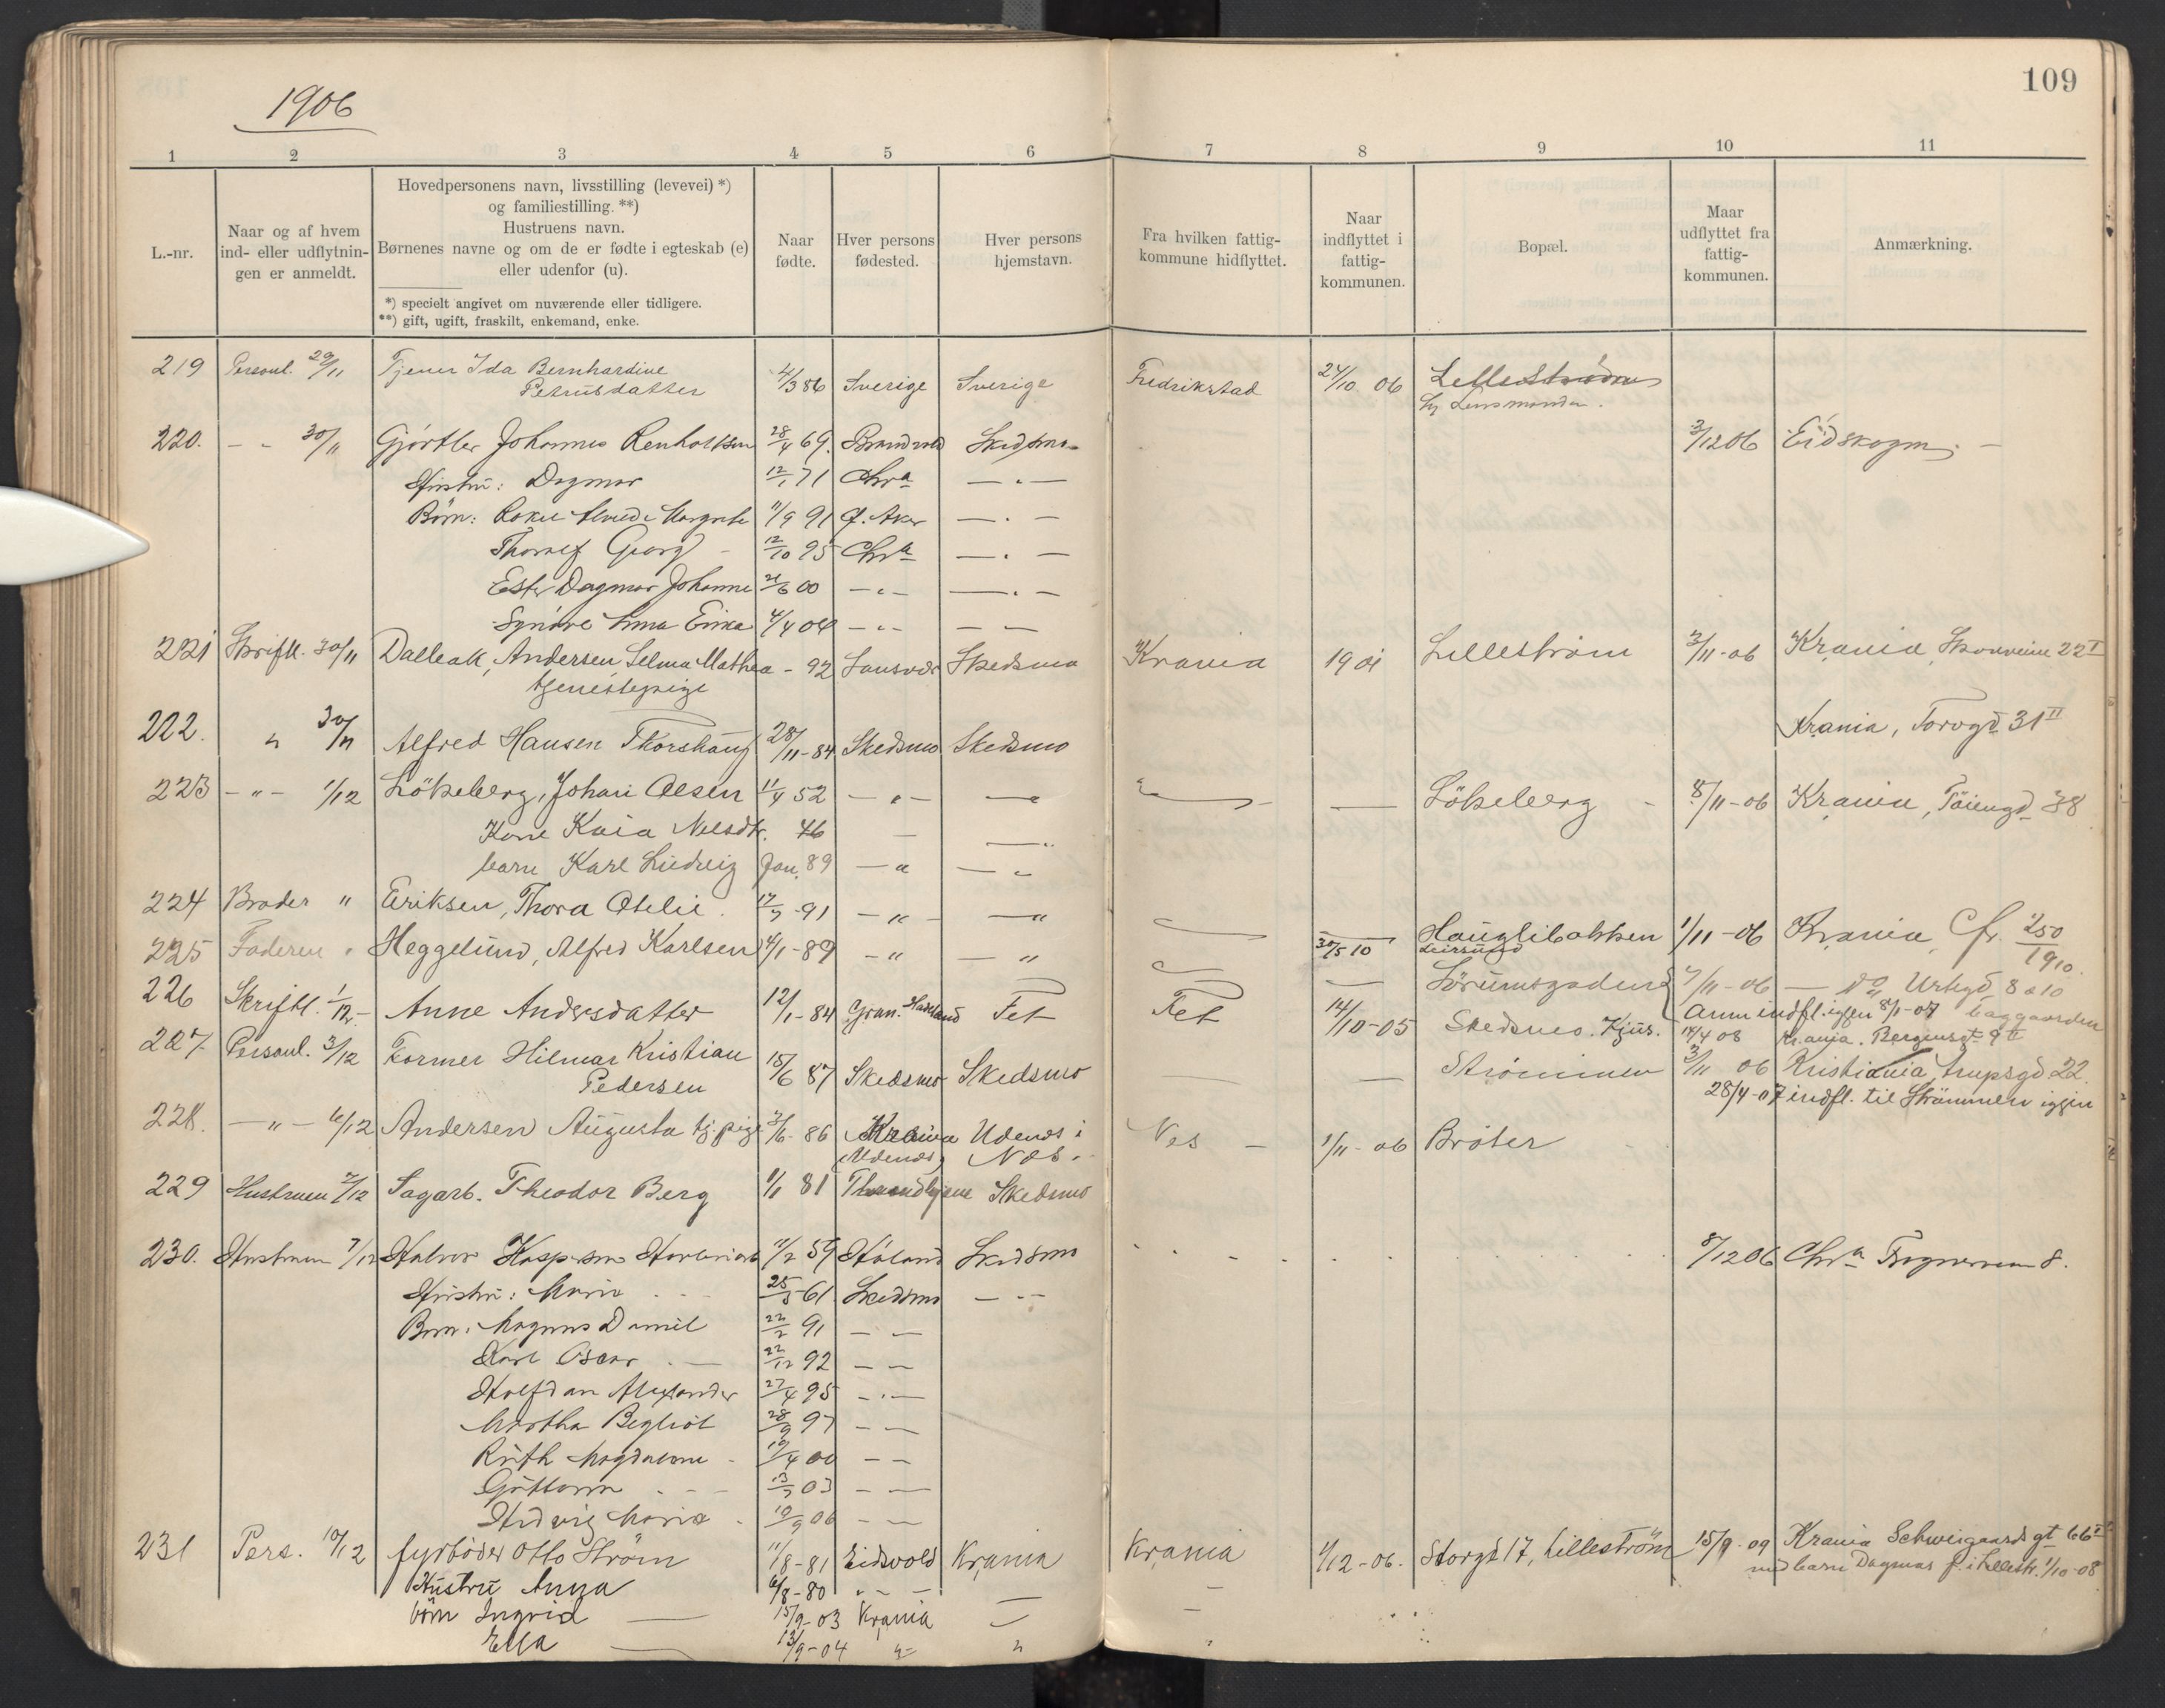 1906
109
1 2 3 4 5 6 7 8 9 10 11
L.-nr.
Naar og af hvem
ind- eller udflytnin-
gen er anmeldt.
Hovedpersonens navn, livsstilling (levevei) *)
og familiestilling. **)
Hustruens navn.
Børnenes navne og om de er fødte i egteskab (e)
eller udenfor (u).
*) specielt angivet om nuværende eller tidligere.
**) gift, ugift, fraskilt, enkemand, enke.
Naar
fødte.
Hver persons
fødested.
Hver persons
hjemstavn.
Fra hvilken fattig-
kommune hidflyttet.
Naar
indflyttet i
fattig-
kommunen.
Bopæl.
Maar
udflyttet fra
fattig-
kommunen.
Anmærkning.
219 Personl. 29/11 Tjener Ida Bernhardine 4/3 86 Sverige Sverige Fredrikstad 24/10 06 Lilleström
Petrusdatter
220. - - 30/11 Gjørtler Johannes 28/4 69. Brandvold Skedsmo 3/12 06 Eidskogen. -
Hustru: Dagmar 12/1 71 Chra — " —
Børn: Margrethe 11/9 91 V. Aker — " —
Thoralf Georg - 12/10 95 Chra — " —
Ester Dagmar Johanne 21/6 00 — " — — " —
Synöve Erika 4/4 04 — " — — —
221 Skriftl. 30/11 Dalleak, Andersen Selma Mathea - 92 Skedsmo Krania 1901 Lilleström 3/11-06 Krania, 22 I
tjenestepige
222. " 30/11 Alfred Hansen Thorshaug 28/11-84 Skedsmo Skedsmo Krania, Torvgd 31 II
223 - " - 1/12 Lökeberg, Johan Olsen 11/4 52 — " — — " — Lökeberg 8/11-06 Krania, Töiengd 38
Kone Kaia Nilsdtr. 46 — — "
barn Karl Ludvig Jan. 89 — " — "
224 Broder " Eriksen, Thora Otelie. 17/7-91 — " — — " — Hauglibakken 1/11-06 Krania, Cfr. 250/1910.
225 Faderen " Heggelund, Alfred Karlsen 4/1-89 — " — " 30/5 10 Leirsund
Sörumsgaden 7/11-06 — do, Urtegd. 8 a 10
226 Skriftl. 1/12- Anne Andersdatter 12/1-84 Gran. Hadeland Fet Fet 14/10-05 Skedsmo. Kjus. Anm indfl. igjen 8/1-07 baggaarden
14/4 08 Krania. Bergensgt 9 II
227 Personl. 3/12 Former Hilmar Kristian 15/6 87 Skedsmo Skedsmo — Strömmen 3/11 06 Kristiania, trupsgd 22.
Pedersen 28/4-07 indfl. til Strömmen igjen
228. — " — 6/12 Andersen Augusta tj. pige 3/6-86 Krania Udends i Nes - 1/11-06 Bröter
(Udends) Nes.
229 Hustruen 7/12 Sagarb. Theodor Berg 1/1 81 Throndhjem Skedsmo
230. Hustruen 7/12 Halvor Kaspersen 11/2 59 Höland Skedsmo 8/12 06 Chra Frognerveien 8.
Hustru: Marie 25/5 61. Skedsmo — " —
Børn: Magnus Daniel 22/2 91 — —
Karl Oscar - 22/12 92 — —
Halfdan Alexander 27/4 95 — " —
Martha Bergliot 28/9 97 — —
Ruth Magdalene - 19/4 00 — —
Guttorm - - 13/7 03 — —
Hedvig Marie - 10/9 06 — —
231 Pers. 10/12 fyrböder Otto Ström 11/8-81 Eidsvold Krania Krania 1/12-06. Storgd 17, Lilleström 15/9-09 Krania Schweigaards gt 66 II
Hustru Anna 6/8-80 " - — med barn Dagmar f. i Lillestr. 1/10-08
børn Ingrid — 15/9-03 Krania —
Ella — 13/9-04 " "